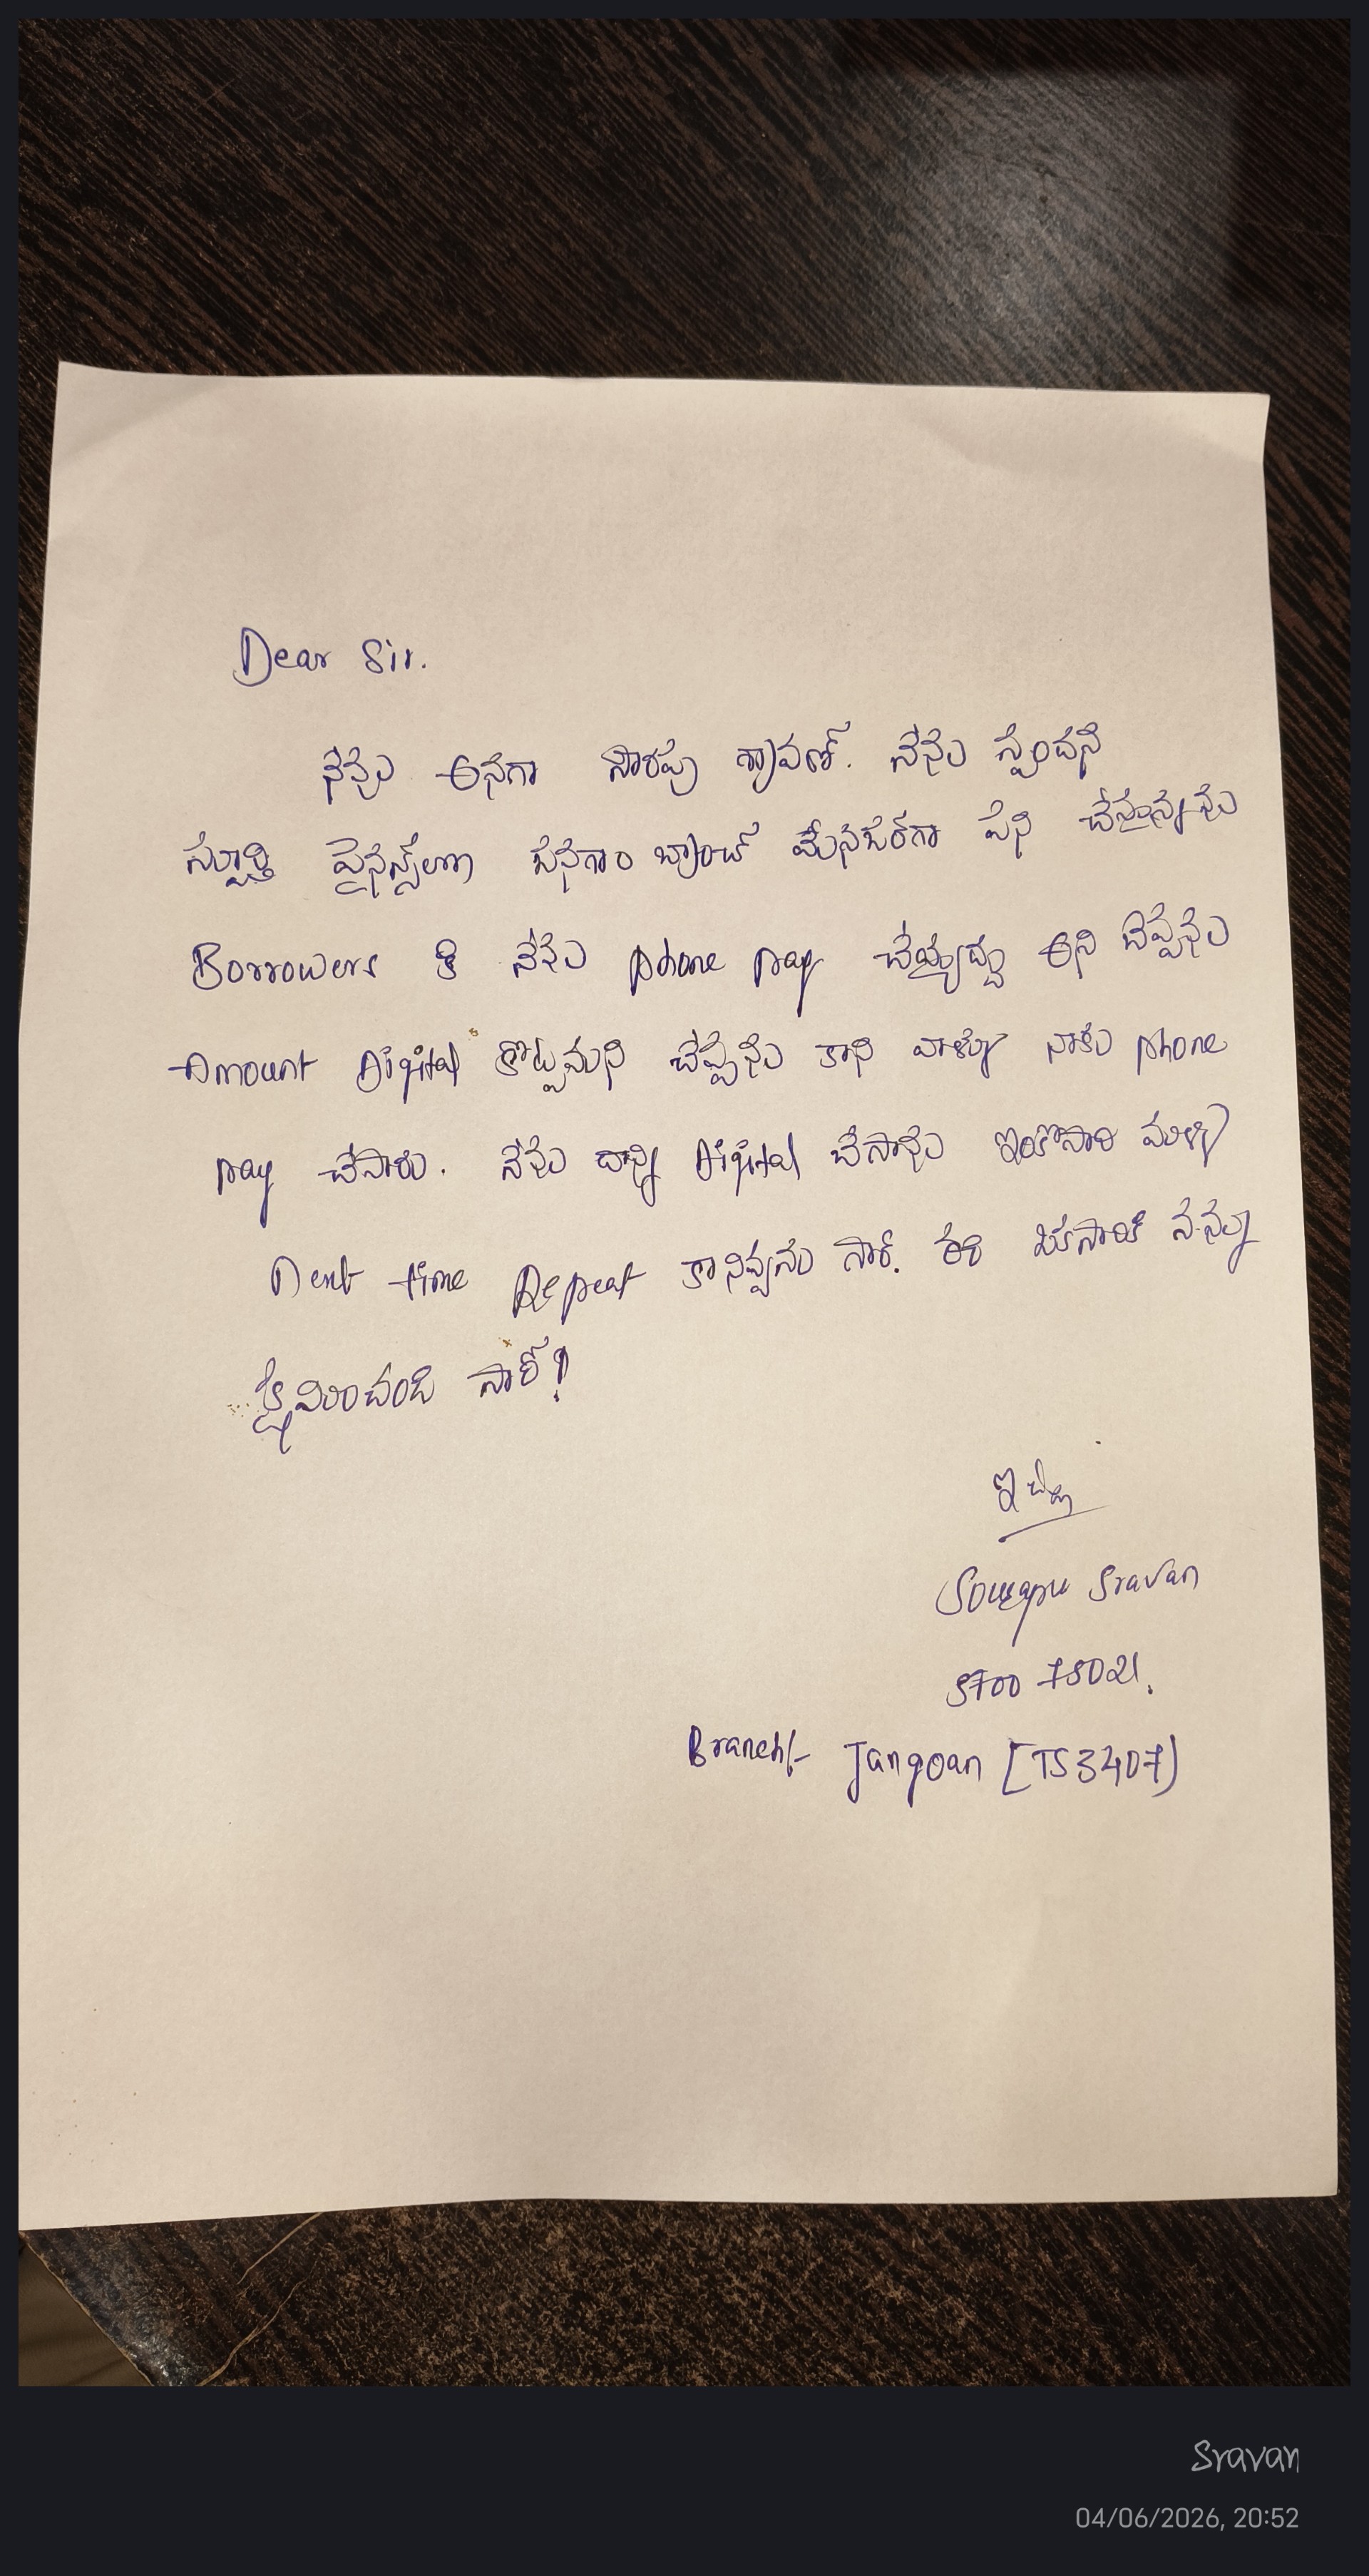 Dear Sir.
నేను అనగా సారపు శ్రావణ్. నేను స్పందన
స్ఫూర్తి ఫైనాన్స్‌లో జనగాం బ్రాంచ్ మేనేజర్‌గా పని చేస్తున్నాను
Borrowers కి నేను phone pay చేయ్యొద్దు అని చెప్పెను
Amount Digital కొట్టమని చెప్పెను కాని వాళ్ళు నాకు phone
pay చేసారు. నేను దాన్ని Digital చేసాను ఇంకోసారి మళ్ళీ
Next time Repeat కానివ్వను సార్. ఈ ఒకసారికి నన్ను
క్షమించండి సార్!
ఇట్లు
Sowrapu Sravan
Branch:- Jangoan [TS3407)
Sravan
04/06/2026, 20:52